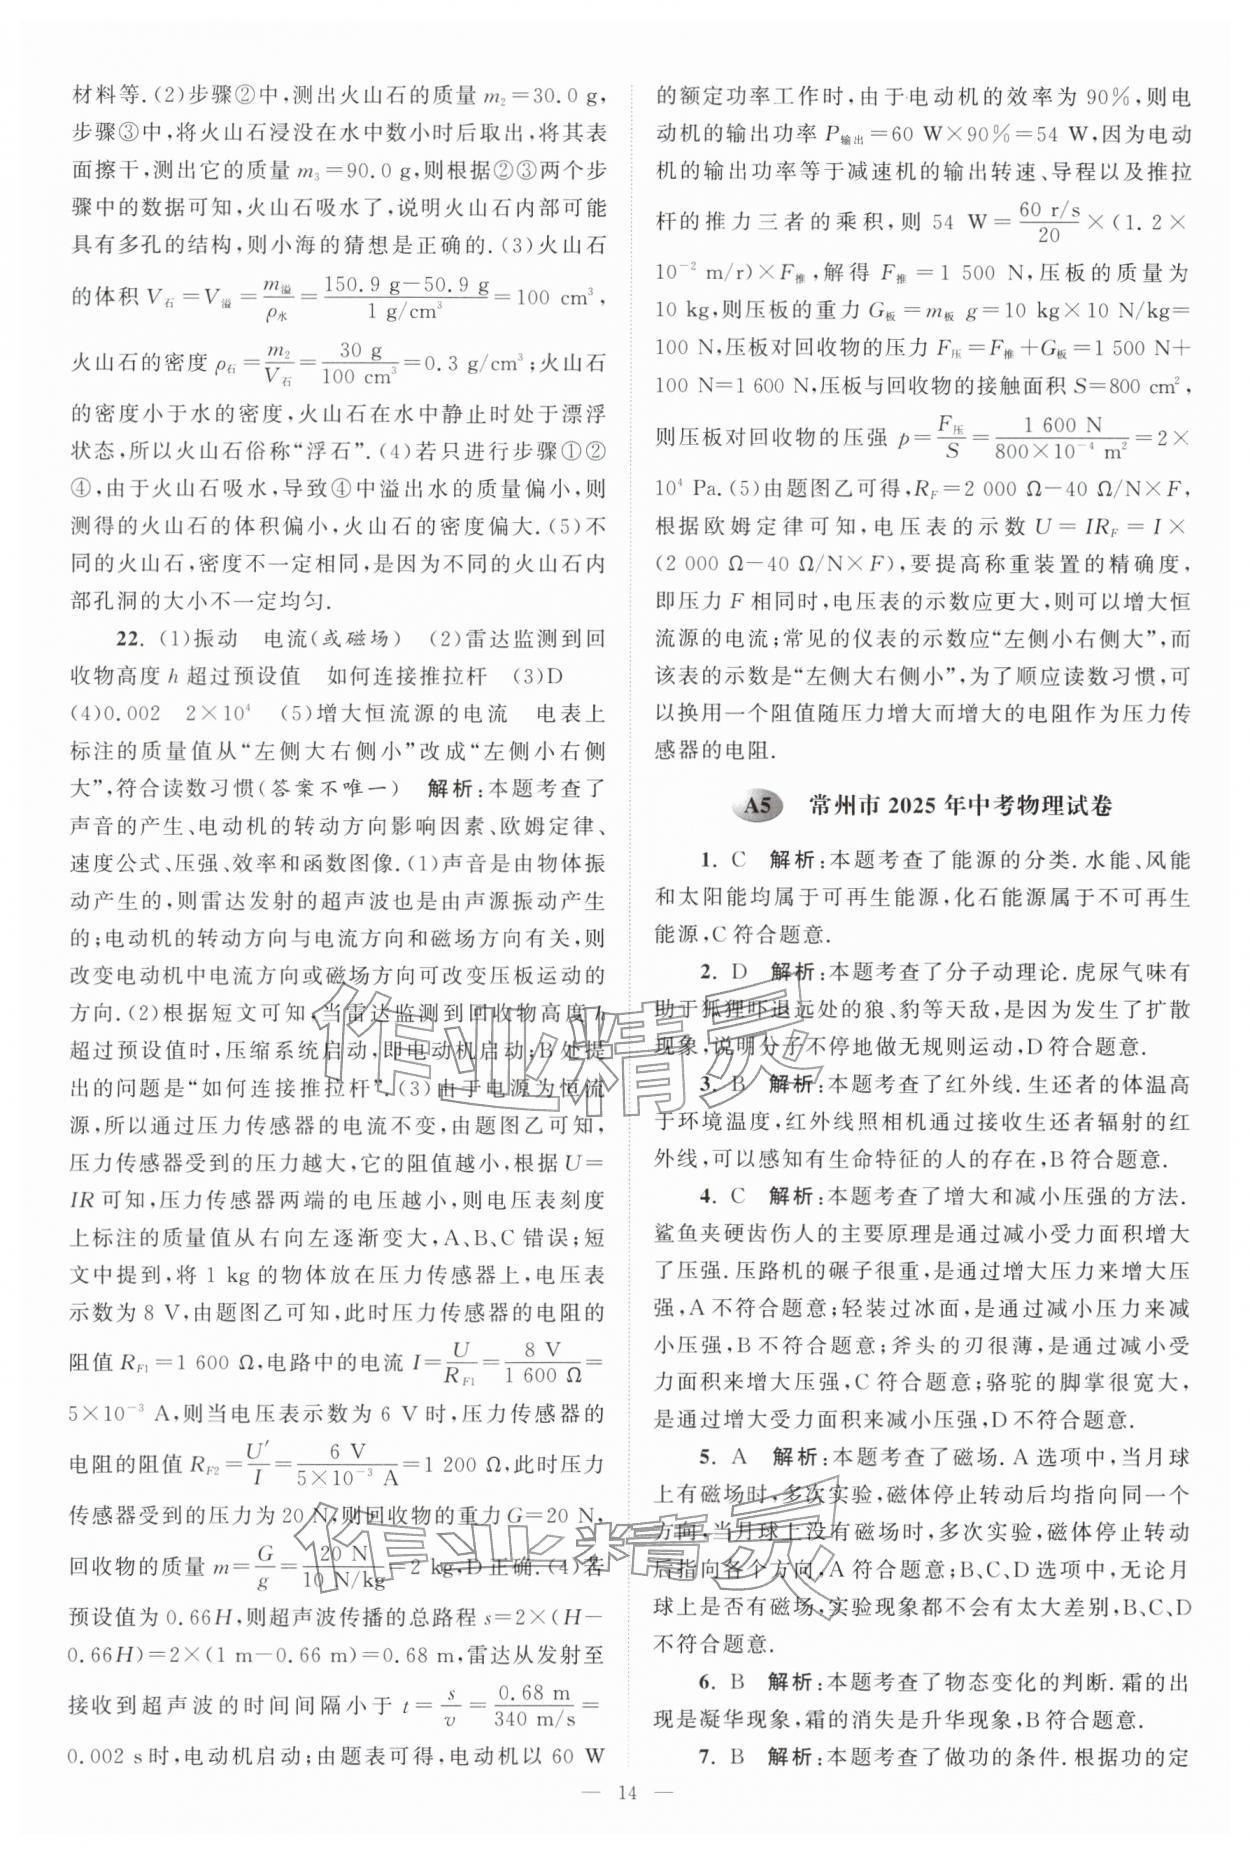 材料等.(2)步骤②中,测出火山石的质量 m₂=30.0 g,
步骤③中,将火山石浸没在水中数小时后取出,将其表
面擦干,测出它的质量 m₃=90.0 g,则根据②③两个步
骤中的数据可知,火山石吸水了,说明火山石内部可能
具有多孔的结构,则小海的猜想是正确的.(3)火山石
的体积 V石=V溢=m溢/ρ水=(150.9 g-50.9 g)/(1 g/cm³)=100 cm³,
火山石的密度 ρ石=m₂/V石=30 g/100 cm³=0.3 g/cm³;火山石
的密度小于水的密度,火山石在水中静止时处于漂浮
状态,所以火山石俗称“浮石”.(4)若只进行步骤①②
④,由于火山石吸水,导致④中溢出水的质量偏小,则
测得的火山石的体积偏小,火山石的密度偏大.(5)不
同的火山石,密度不一定相同,是因为不同的火山石内
部孔洞的大小不一定均匀.
22. (1)振动 电流(或磁场) (2)雷达监测到回
收物高度 h 超过预设值 如何连接推拉杆 (3)D
(4)0.002 2×10⁴ (5)增大恒流源的电流 电表上
标注的质量值从“左侧大右侧小”改成“左侧小右侧
大”,符合读数习惯(答案不唯一) 解析:本题考查了
声音的产生、电动机的转动方向影响因素、欧姆定律、
速度公式、压强、效率和函数图像.(1)声音是由物体振
动产生的,则雷达发射的超声波也是由声源振动产生
的;电动机的转动方向与电流方向和磁场方向有关,则
改变电动机中电流方向或磁场方向可改变压板运动的
方向.(2)根据短文可知,当雷达监测到回收物高度 h
超过预设值时,压缩系统启动,即电动机启动;B 处提
出的问题是“如何连接推拉杆”.(3)由于电源为恒流
源,所以通过压力传感器的电流不变,由题图乙可知,
压力传感器受到的压力越大,它的阻值越小,根据 U=
IR 可知,压力传感器两端的电压越小,则电压表刻度
上标注的质量值从右向左逐渐变大,A、B、C 错误;短
文中提到,将 1 kg 的物体放在压力传感器上,电压表
示数为 8 V,由题图乙可知,此时压力传感器的电阻的
阻值 R_F1=1 600 Ω,电路中的电流 I=U/R_F1=8 V/1 600 Ω=
5×10⁻³ A,则当电压表示数为 6 V 时,压力传感器的
电阻的阻值 R_F2=U′/I=6 V/(5×10⁻³ A)=1 200 Ω,此时压力
传感器受到的压力为 20 N,则回收物的重力 G=20 N,
回收物的质量 m=G/g=20 N/(10 N/kg)=2 kg,D 正确.(4)若
预设值为 0.66H,则超声波传播的总路程 s=2×(H-
0.66H)=2×(1 m-0.66 m)=0.68 m,雷达从发射至
接收到超声波的时间间隔小于 t=s/v=0.68 m/(340 m/s)=
0.002 s 时,电动机启动;由题表可得,电动机以 60 W
的额定功率工作时,由于电动机的效率为 90%,则电
动机的输出功率 P输出=60 W×90%=54 W,因为电动
机的输出功率等于减速机的输出转速、导程以及推拉
杆的推力三者的乘积,则 54 W=(60 r/s)/20×(1.2×
10⁻² m/r)×F推,解得 F推=1 500 N,压板的质量为
10 kg,则压板的重力 G板=m板 g=10 kg×10 N/kg=
100 N,压板对回收物的压力 F压=F推+G板=1 500 N+
100 N=1 600 N,压板与回收物的接触面积 S=800 cm²,
则压板对回收物的压强 p=F压/S=1 600 N/(800×10⁻⁴ m²)=2×
10⁴ Pa.(5)由题图乙可得,R_F=2 000 Ω-40 Ω/N×F,
根据欧姆定律可知,电压表的示数 U=IR_F=I×
(2 000 Ω-40 Ω/N×F),要提高称重装置的精确度,
即压力 F 相同时,电压表的示数应更大,则可以增大恒
流源的电流;常见的仪表的示数应“左侧小右侧大”,而
该表的示数是“左侧大右侧小”,为了顺应读数习惯,可
以换用一个阻值随压力增大而增大的电阻作为压力传
感器的电阻.
A5 常州市 2025 年中考物理试卷
1. C 解析:本题考查了能源的分类.水能、风能
和太阳能均属于可再生能源,化石能源属于不可再生
能源,C 符合题意.
2. D 解析:本题考查了分子动理论.虎尿气味有
助于狐狸吓退远处的狼、豹等天敌,是因为发生了扩散
现象,说明分子不停地做无规则运动,D 符合题意.
3. B 解析:本题考查了红外线.生还者的体温高
于环境温度,红外线照相机通过接收生还者辐射的红
外线,可以感知有生命特征的人的存在,B 符合题意.
4. C 解析:本题考查了增大和减小压强的方法.
鲨鱼夹硬齿伤人的主要原理是通过减小受力面积增大
了压强.压路机的碾子很重,是通过增大压力来增大压
强,A 不符合题意;轻装过冰面,是通过减小压力来减
小压强,B 不符合题意;斧头的刃很薄,是通过减小受
力面积来增大压强,C 符合题意;骆驼的脚掌很宽大,
是通过增大受力面积来减小压强,D 不符合题意.
5. A 解析:本题考查了磁场.A 选项中,当月球
上有磁场时,多次实验,磁体停止转动后均指向同一个
方向,当月球上没有磁场时,多次实验,磁体停止转动
后指向各个方向,A 符合题意;B、C、D 选项中,无论月
球上是否有磁场,实验现象都不会有太大差别,B、C、D
不符合题意.
6. B 解析:本题考查了物态变化的判断.霜的出
现是凝华现象,霜的消失是升华现象,B 符合题意.
7. B 解析:本题考查了做功的条件.根据功的定
— 14 —
作业精灵
作业精灵